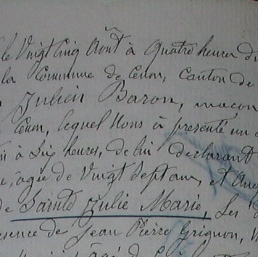 le Vingt Cinq Août à quatre heures d
la Commune de Cenon, Canton de
Julien Baron, maçon
Cenon, lequel Nous a présenté un
à six heures, de lui déclarant
âgée de Vingt Sept ans, et au
de Sainte Julie Marie, Les
de Jean Pierre Grignon,
âgé de